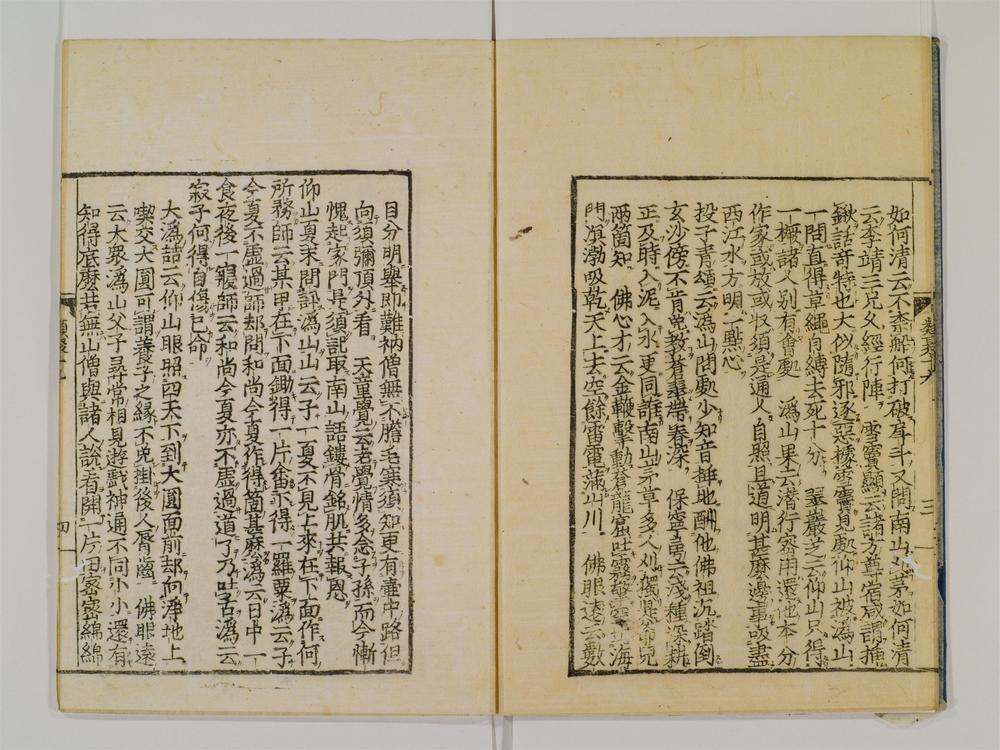 如何清云不奈船何打破戽斗又問南山刈茅如何清
云李靖三兄久經行陣 雪竇顯云諸方尊宿咸謂插
鍬話奇特也大似隨邪逐惡據雪竇見處仰山被溈山
一問直得草繩自縛去死十分 翠巖芝云仰山只得
一橛諸人別有會處 溈山果云潛行密用還他本分
作家或放或收須是通人自照且道明甚麼邊事吸盡
西江水方明一點心
投子青頌云溈山問處少知音插地酬他佛祖沉踏倒
玄沙傍不肯免教蒼翠帶春深 保寧勇云淺種深耕
正及時入泥入水更同誰南山茅草多人刈獨是爺兒
兩箇知 佛心才云金鞭擊動蒼龍窟吐霧 海
門溟渤吸乾天上去空餘雷電滿山川 佛眼遠云數
三
目分明舉即難衲僧無不膽毛寒須知更有壷中路但
向須彌頂外看 天童覺云老覺情多念子孫而今慚
愧起家門是須記取南山語鏤骨銘肌共報恩
仰山夏末問訊溈山山云子一夏不見上來在下面作何
所務師云某甲在下面鋤得一片畬下得一籮粟溈云子
今夏不虛過師却問和尚今夏作得箇甚麼溈云日中一
食夜後一寢師云和尚今夏亦不虛過道了乃吐舌溈云
寂子何得自傷己命
大溈喆云仰山眼照四天下到大圓面前却向淨地上
喫交大圓可謂養子之緣不免掛後人唇齒 佛眼遠
云大衆溈山父子尋常相見遊戲神通不同小小還有
知得底麼共無山僧與諸人說看開一片田密密綿綿
四